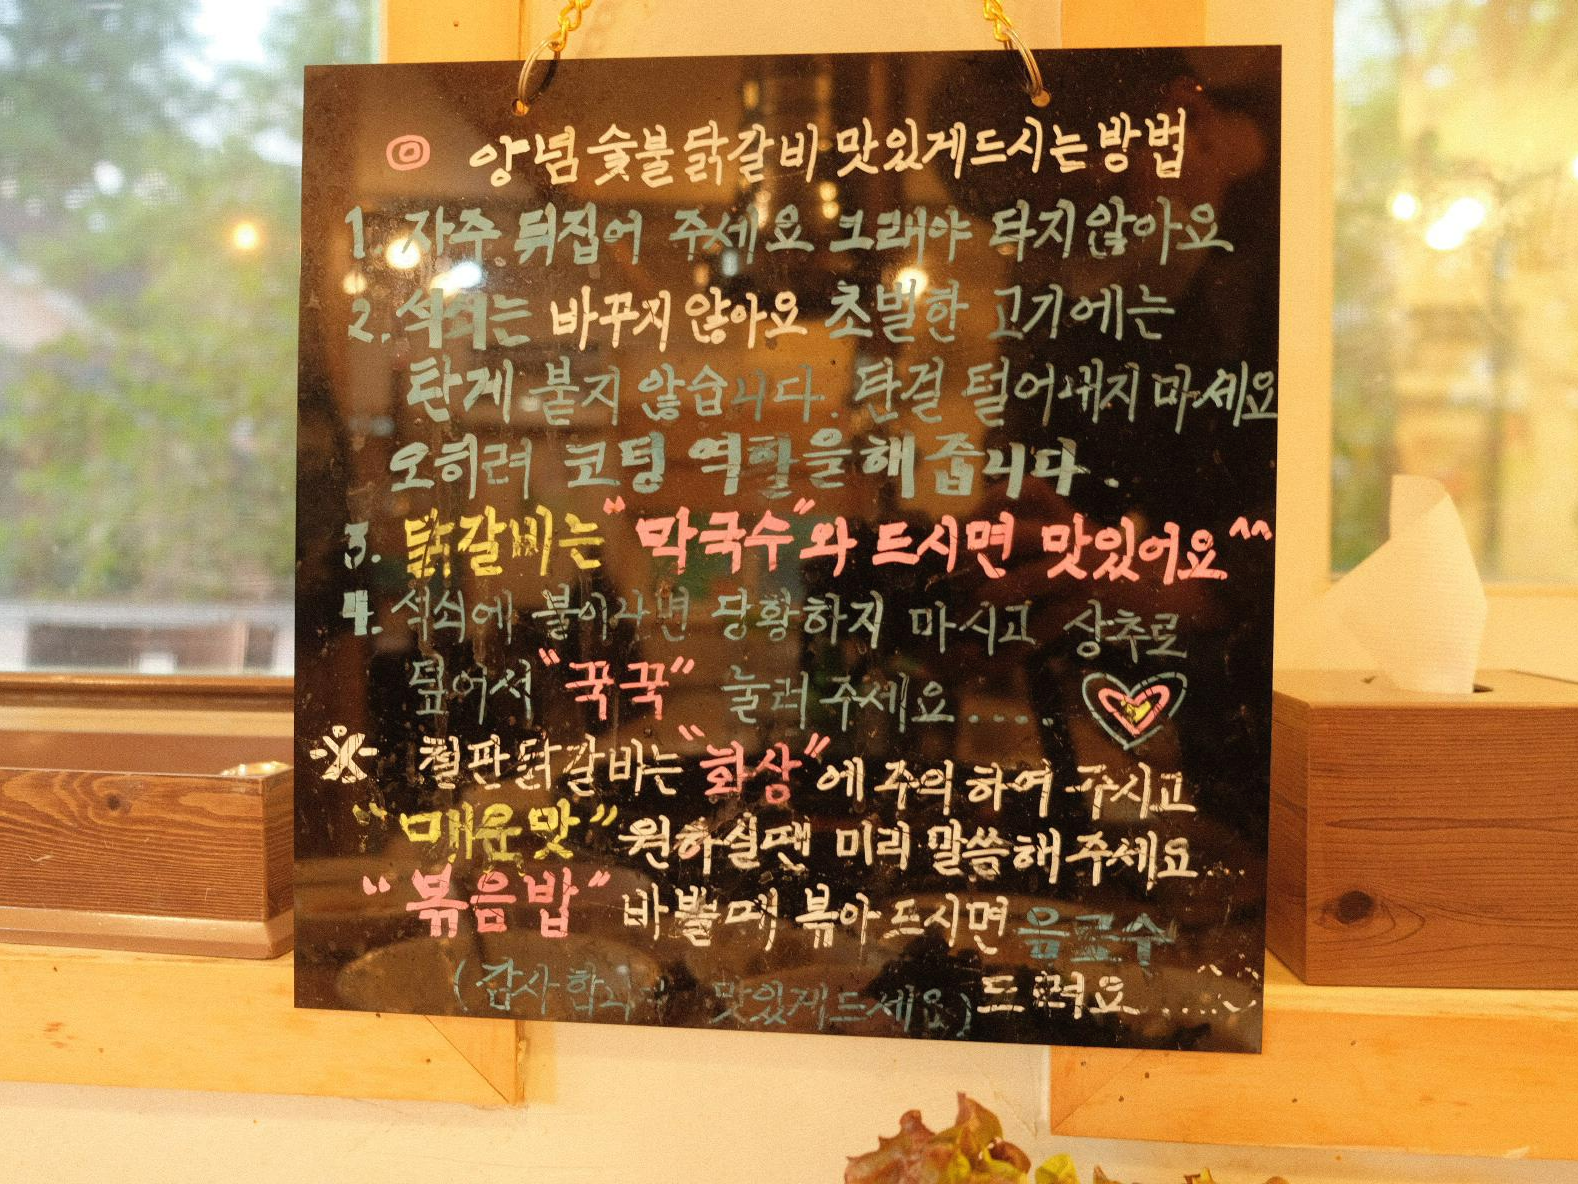 ◎ 양념숯불닭갈비 맛있게드시는방법
1. 자주 뒤집어 주세요 그래야 타지않아요
2. 석쇠는 바꾸지 않아요 초벌한 고기에는
탄게 붙지 않습니다. 탄걸 털어내지 마세요
오히려 코팅 역할을해줍니다.
3. 닭갈비는 "막국수"와 드시면 맛있어요^^
4. 석쇠에 불이나면 당황하지 마시고 상추로
덮어서 "꾹꾹" 눌러 주세요....
※ 철판닭갈비는 "화상"에 주의하여 주시고
"매운맛" 원하실땐 미리 말씀해주세요...
"볶음밥" 바쁠때 볶아드시면 음료수
드려요.....
(감사합니다 맛있게드세요)